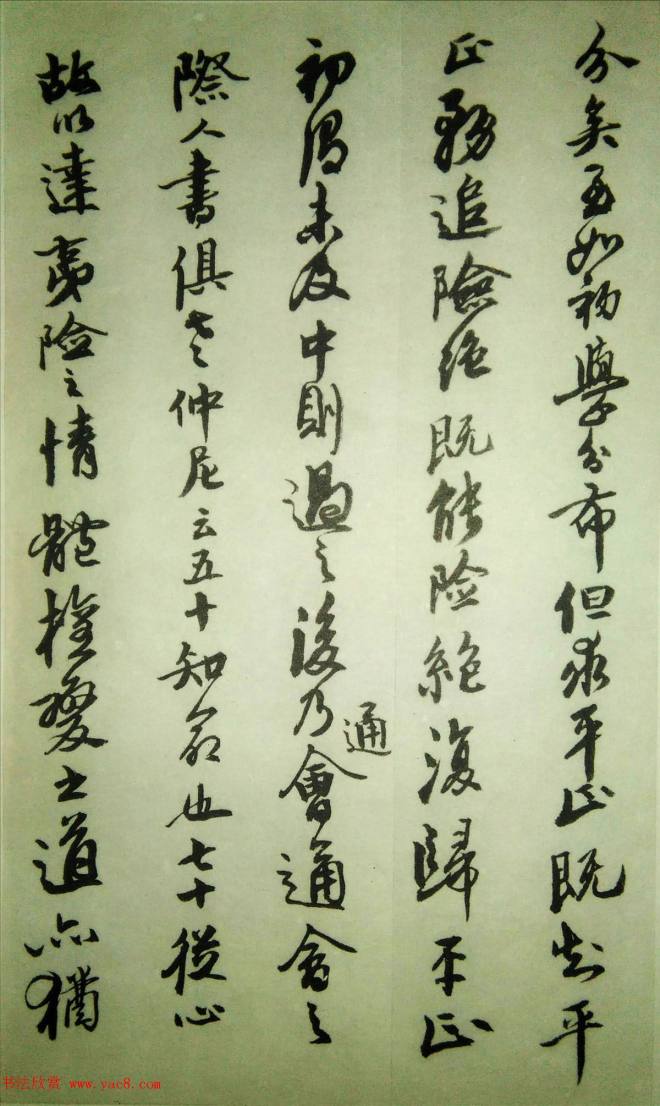 分矣至如初學分布但求平正既知平
正務追險絶既能险絶復歸平正
初謂未及中則過之後乃通會通會之
際人書俱老仲尼云五十知命也七十從心
故以達夷险之情體權變之道亦猶
书法欣赏 www.yac8.com